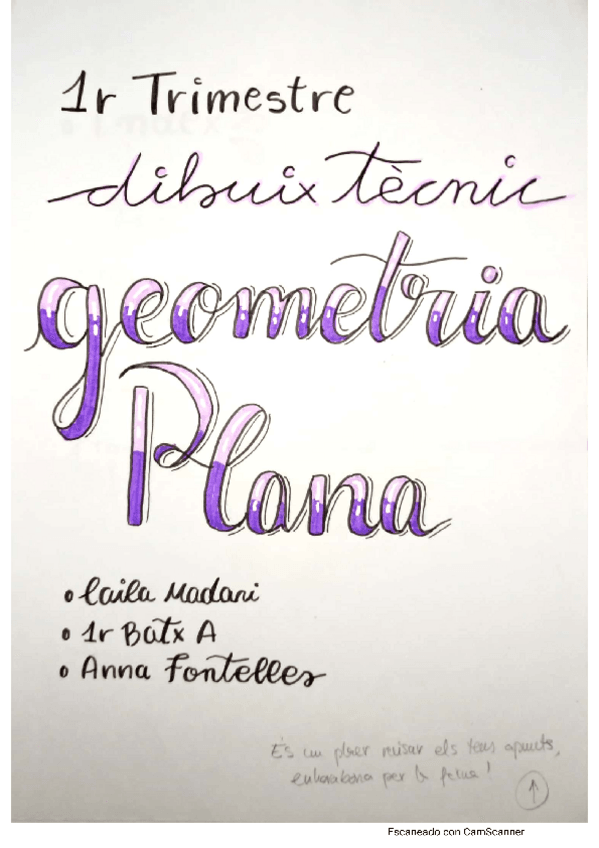 1r Trimestre
dibuix tècnic
geometria
Plana
• Laila Madani
• 1r Batx A
• Anna Fontelles
És un plaer revisar els teus apunts,
enhorabona per la feina!
Escaneado con CamScanner